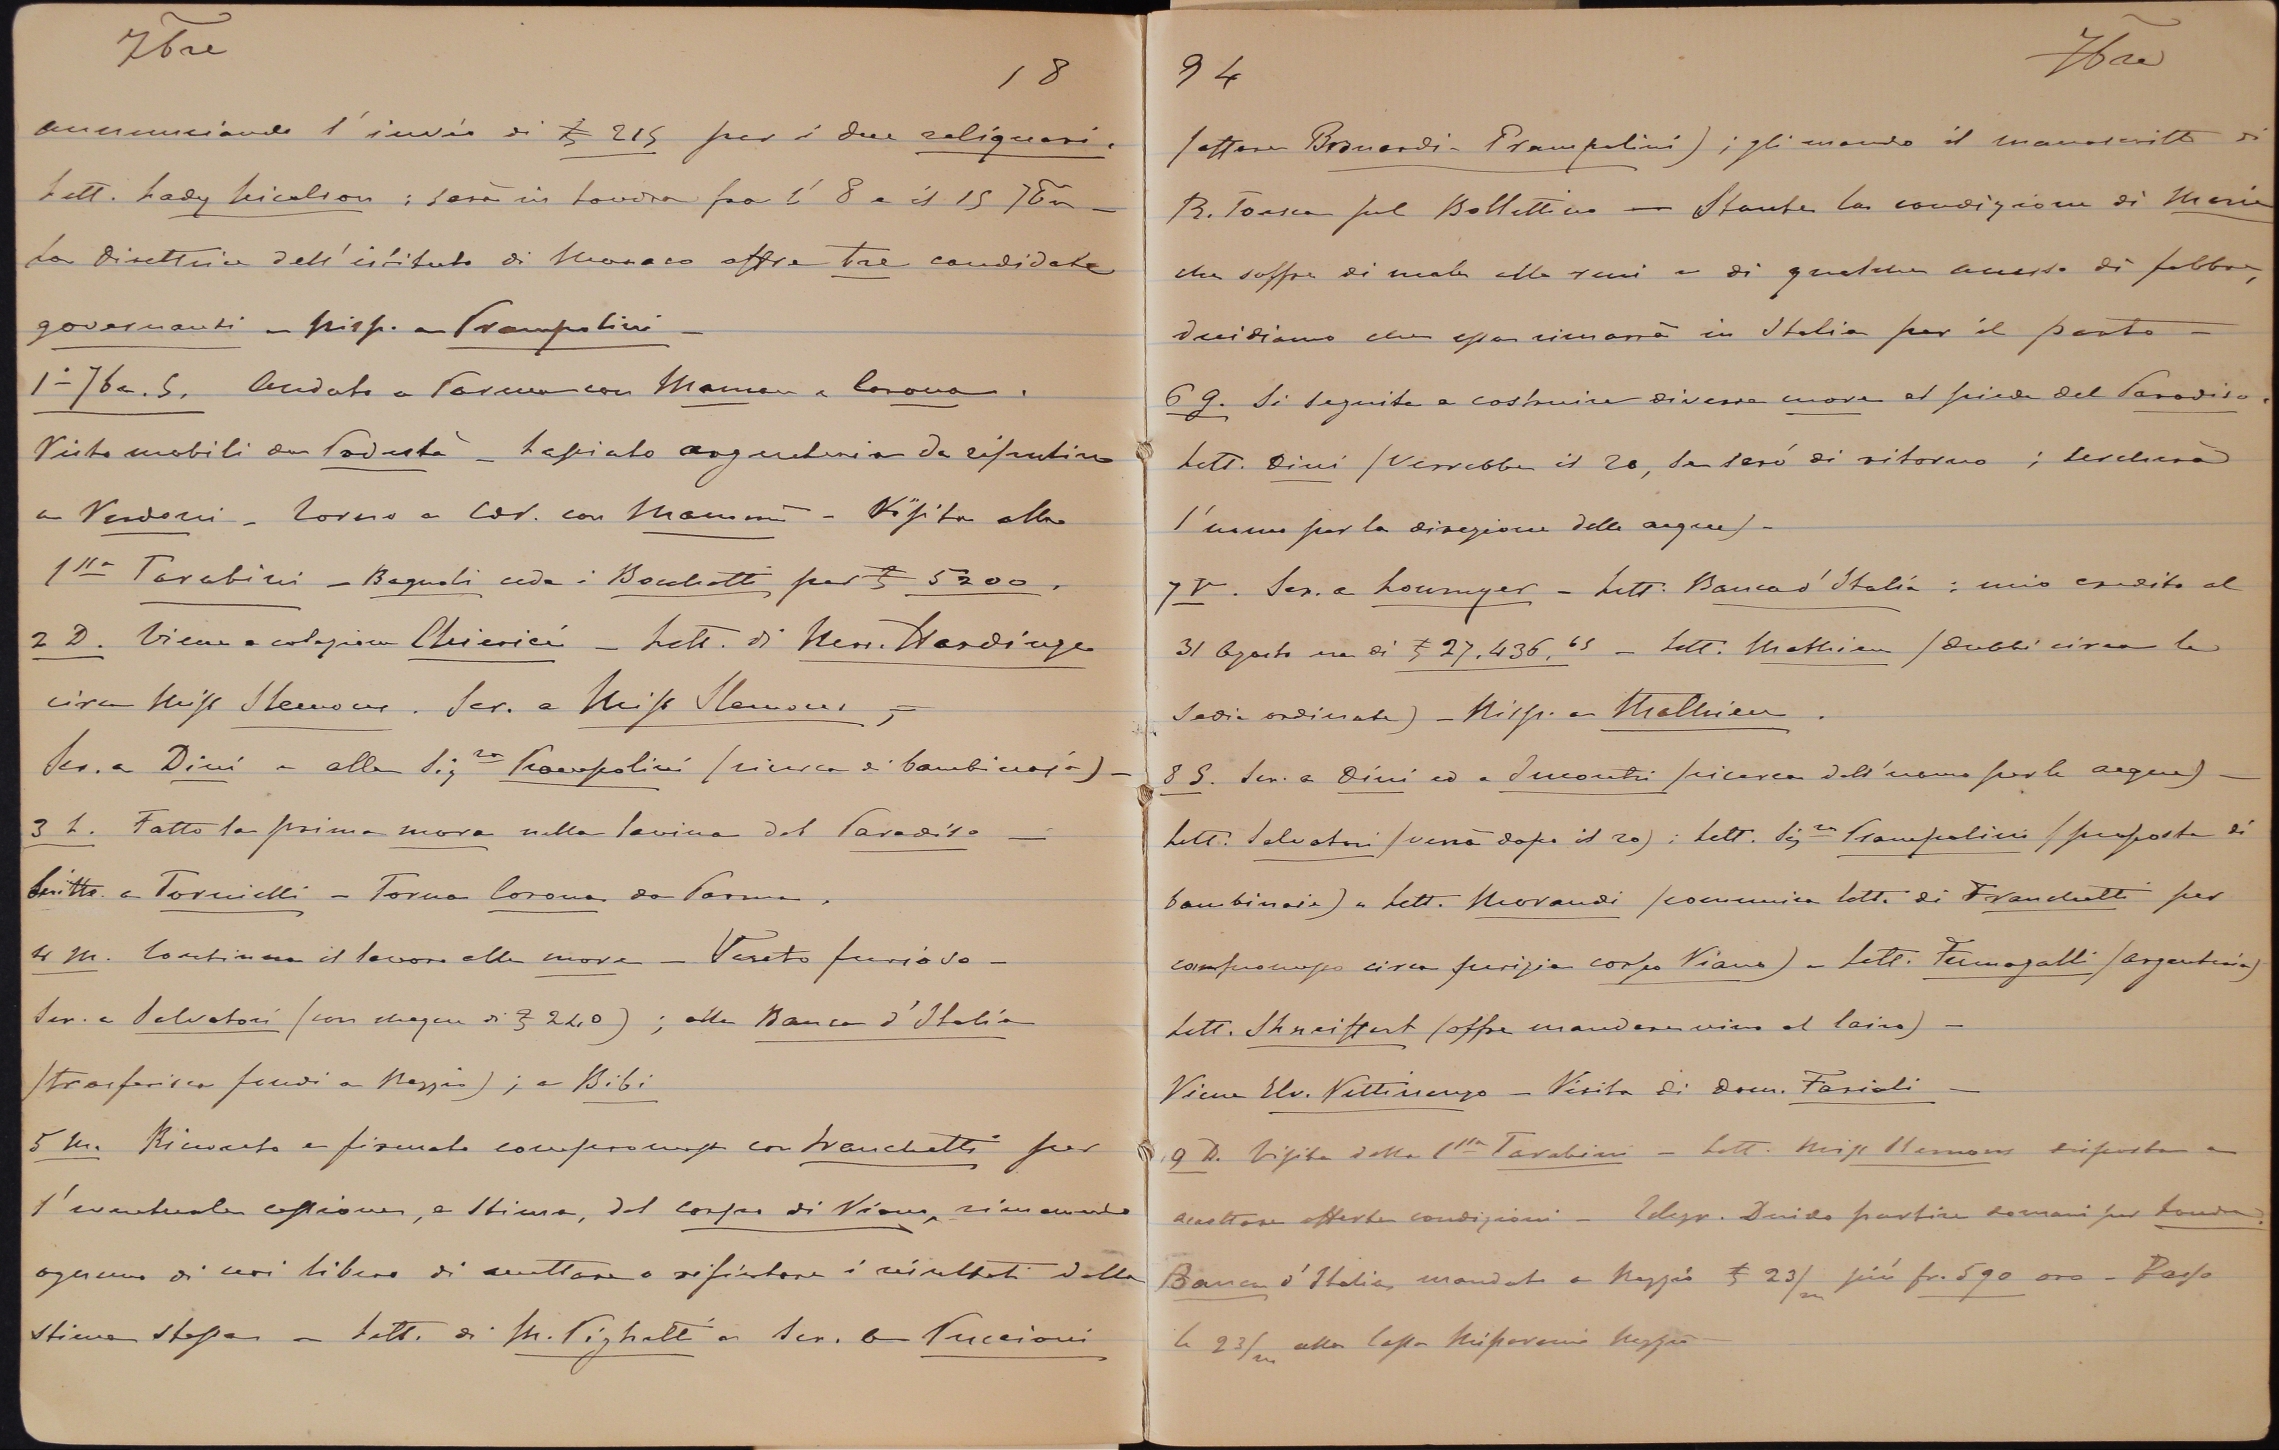 7bre
18
annunciando l'invio di £ 215 per i due reliquari.
Lett. Lady Nicolson : sarà in Londra fra l' 8 e il 15 7bre —
La Direttrice dell'istituto di Monaco offre tre candidate
governanti — Risp. a Prampolini —
1° 7bre. S. Andato a Parma con Maman e Corona.
Visto mobili da Podestà — Lasciato argenteria da ripulire
a Verdoni — Torno a Cav. con Mammà — Visita alla
Pssa Tarabini — Bagnoli cede i Bocchetti per £ 5200.
2 D. Viene a colazione Chierici — Lett. di Mess. Hardinge
circa Miss Slemons. Scr. a Miss Slemons, —
Scr. a Dini e alla Sigra Prampolini (ricerca di bambinaja) —
3 L. Fatto la prima mora nella lavina del Paradiso —
Scritto a Tornielli — Torna Corona da Parma.
4 M. Continua il lavoro alle more — Vento furioso —
Scr. a Salvatori (con chèque di £ 240) ; alla Banca d'Italia
(trasferisca fondi a Reggio) ; a Bibi
5 M. Ricevuto e firmato compromesso con Franchetti per
l'eventuale cessione, a stima, del corpo di Viano, rimanendo
ognuno di noi libero di accettare o rifiutare i risultati della
stima stessa — Lett. di M. Pighetti e Scr. a Puccioni
94
7bre
(affare Bernardi - Prampolini) ; gli mando il manoscritto di
R. Toesca sul Bollettino — Stante la condizione di Maria
che soffre di male alle reni e di qualche accesso di febbre,
decidiamo che essa rimarrà in Italia per il parto —
6 G. Si seguita a costruire diverse more al piede del Paradiso.
Lett. Dini (Verrebbe il 20, se sarò di ritorno ; cercherà
l'uomo per la direzione delle acque) —
7 V. Scr. a Loumyer — Lett. Banca d'Italia : mio credito al
31 Agosto era di £ 27.436,65 — Lett. Mathieu (dubbi circa le
sedie ordinate) — Risp. a Mathieu.
8 S. Scr. a Dini ed a Incontri (ricerca dell'uomo per le acque) —
Lett. Salvatori (verrà dopo il 20) ; Lett. Sigra Prampolini (proposta di
bambinaie) e Lett. Morandi (comunica lett. di Franchetti per
compromesso circa perizia corpo Viano) — Lett. Fumagalli (argenteria)
Lett. Schneiffert (offre mandare vino al Cairo) —
Viene Elv. Vettinengo — Visita di Dom. Farioli —
9 D. Visita della Pssa Tarabini — Lett. Miss Slemons disposta a
accettare offerte condizioni — Telegr. Decido partire domani per Londra.
Banca d'Italia mandato a Reggio £ 23/m più fr. 590 oro — Passo
le 23/m alla Cassa Risparmio Reggio —